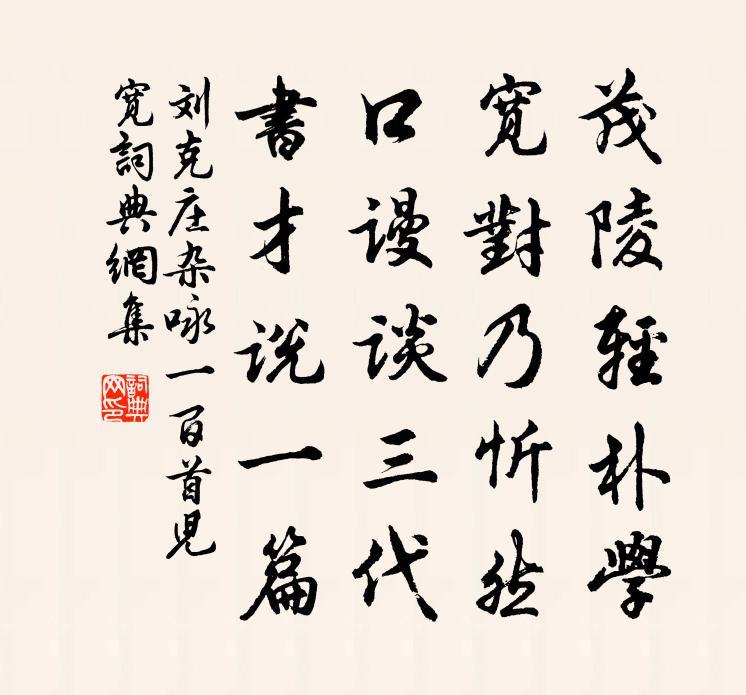 茂陵輕朴學
寬對乃忻然
口谩谈三代
書才说一篇
刘克庄杂咏一百首児
寬詞典網集
詞典网印